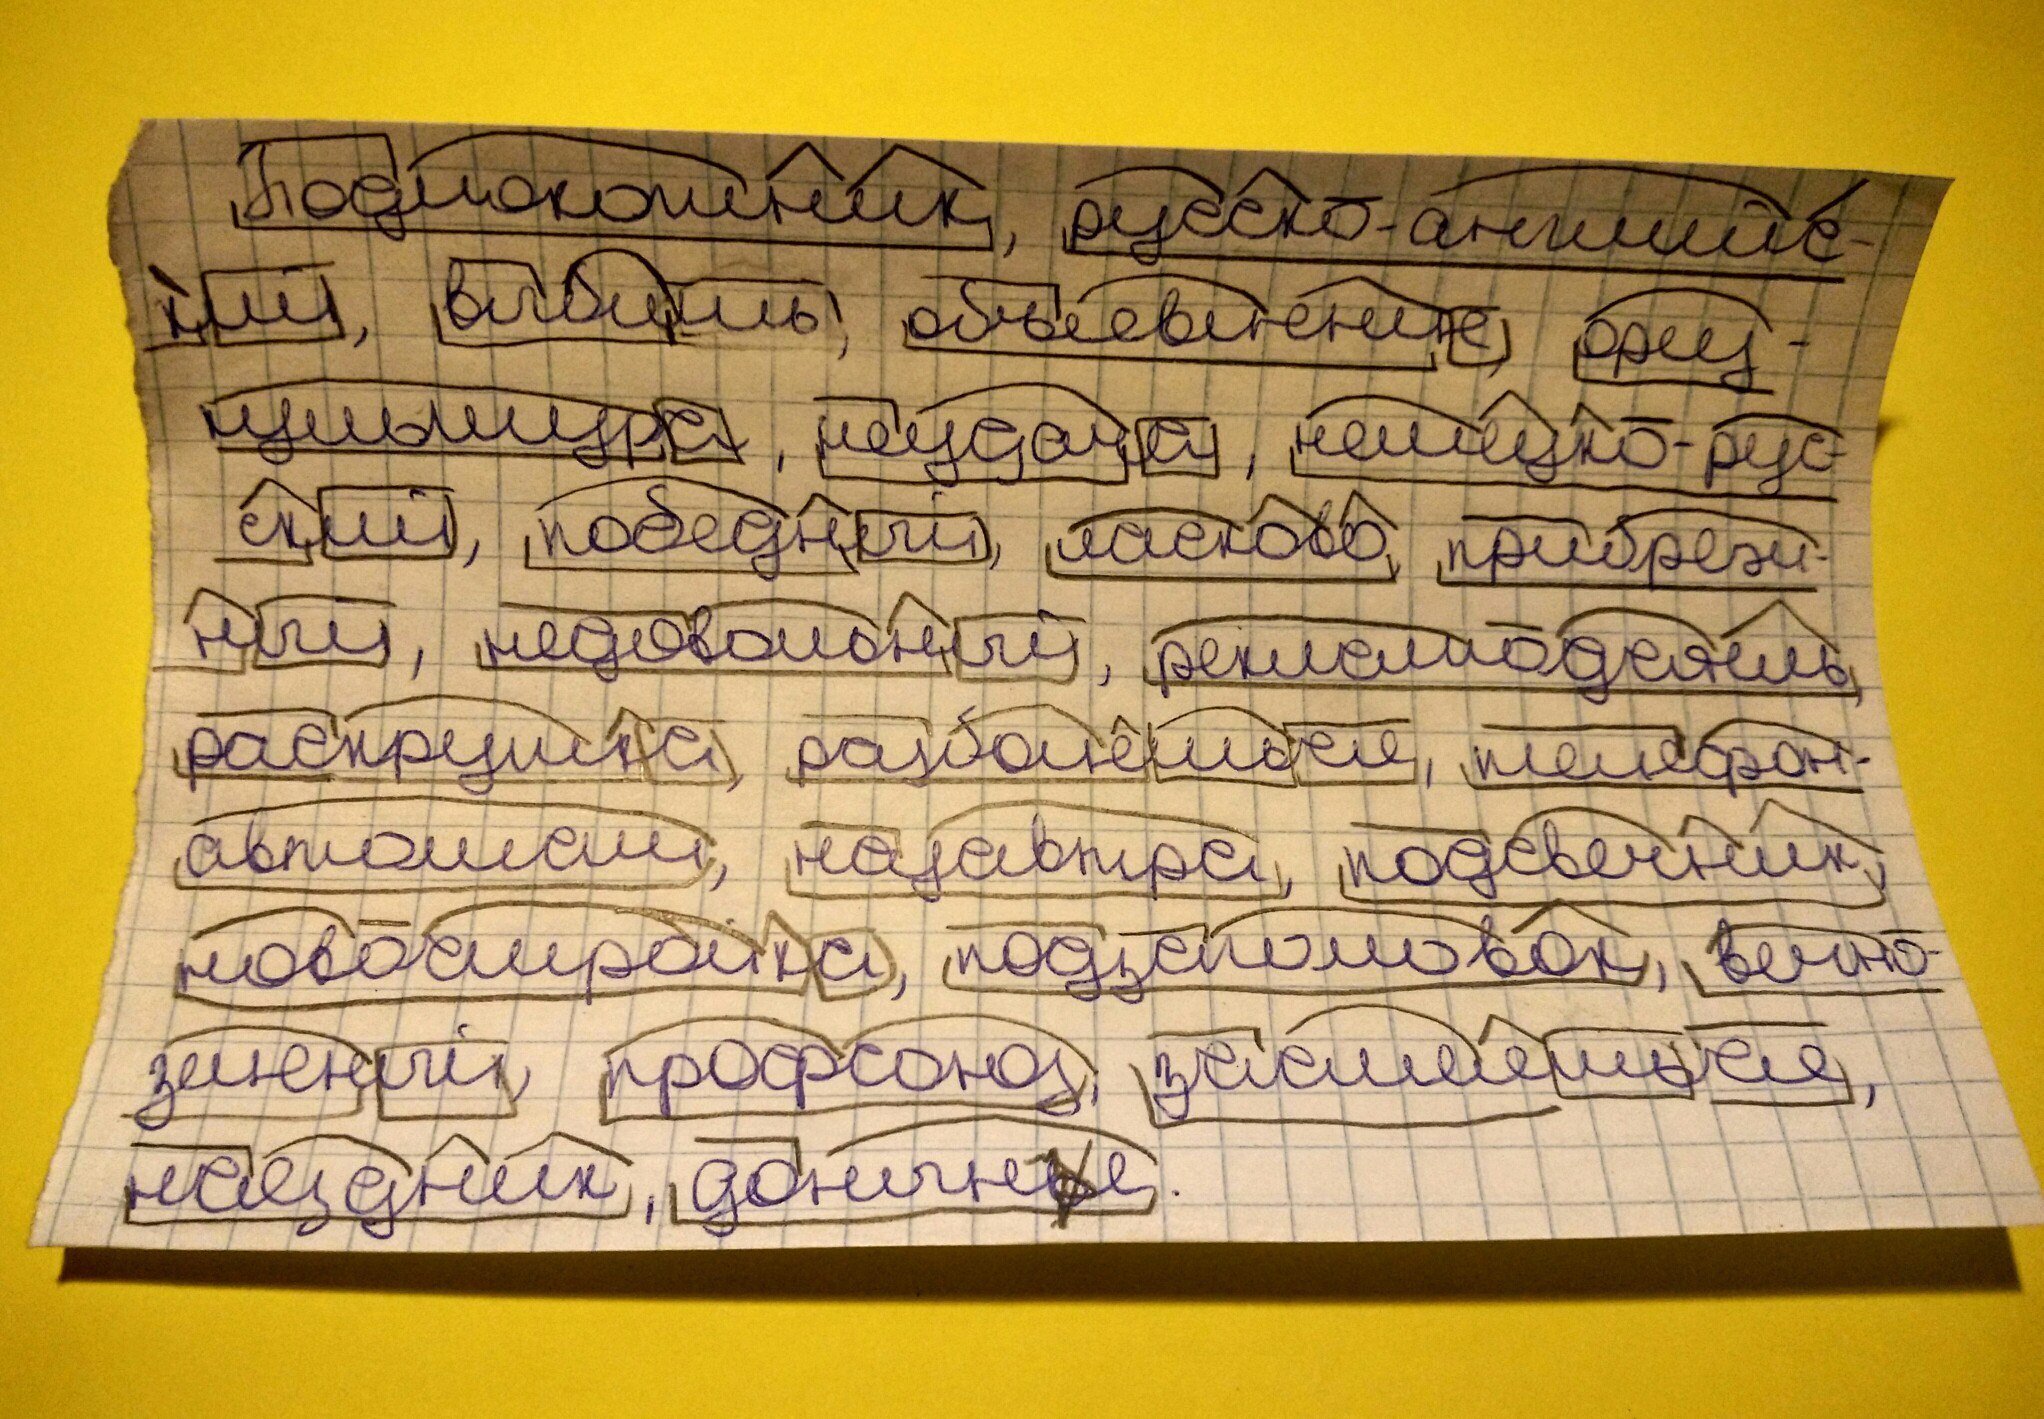 Подлокотник, русско-английс-
кий, выбить, объявление, физ-
культура, неудача, немецко-рус-
ский, победный, ласково, прибреж-
ный, недовольный, рекламодатель,
раскрутка, разболеться, телефон-
автомат, назавтра, подсвечник,
новостройка, подзаголовок, вечно-
зеленый, профсоюз, засмеяться,
наездник, донычне.